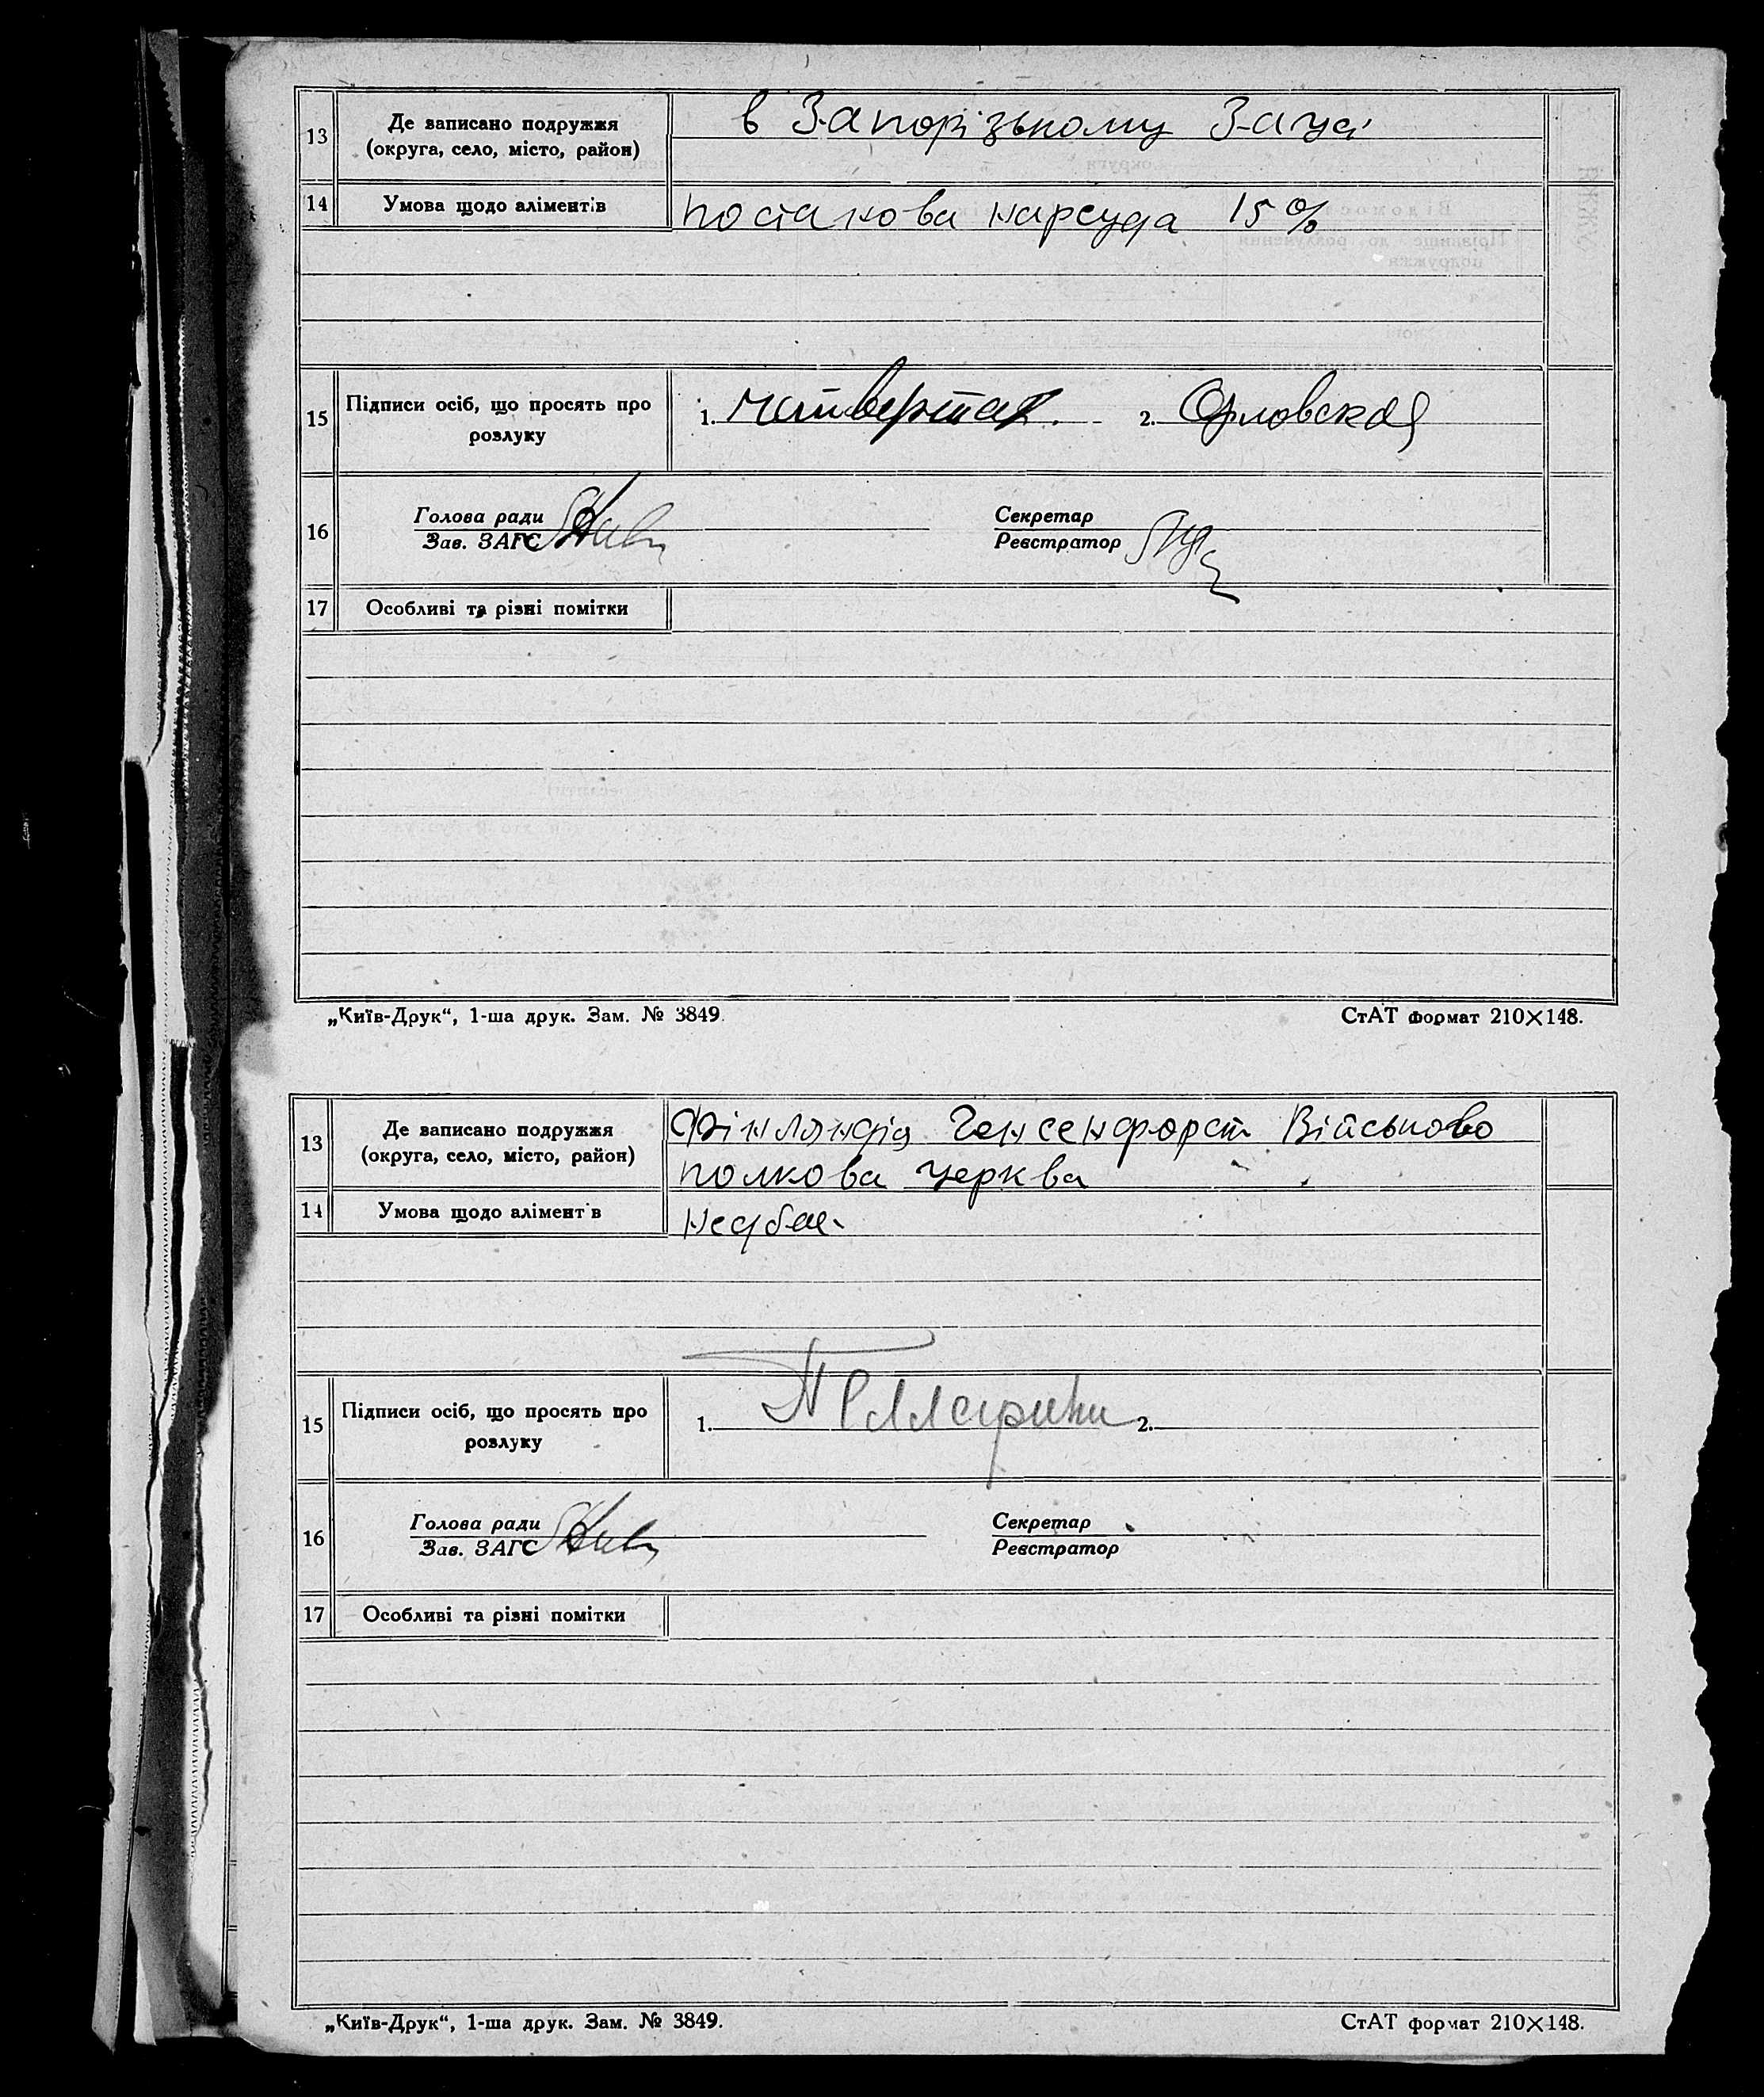 13 Де записано подружжя
(округа, село, місто, район)
в Запорізькому Загсі
14 Умова щодо аліментів
постанова нарсуда 15%
15 Підписи осіб, що просять про
розлуку
1. 2. Орловская
16 Голова ради
Зав. ЗАГС
Секретар
Реєстратор
17 Особливі та різні помітки
„Київ-Друк“, 1-ша друк. Зам. № 3849.
СтАТ формат 210×148.
13 Де записано подружжя
(округа, село, місто, район)
Фінляндія Генсенфорст Військово
полкова церква
14 Умова щодо аліментів
15 Підписи осіб, що просять про
розлуку
1. 2.
16 Голова ради
Зав. ЗАГС
Секретар
Реєстратор
17 Особливі та різні помітки
„Київ-Друк“, 1-ша друк. Зам. № 3849.
СтАТ формат 210×148.